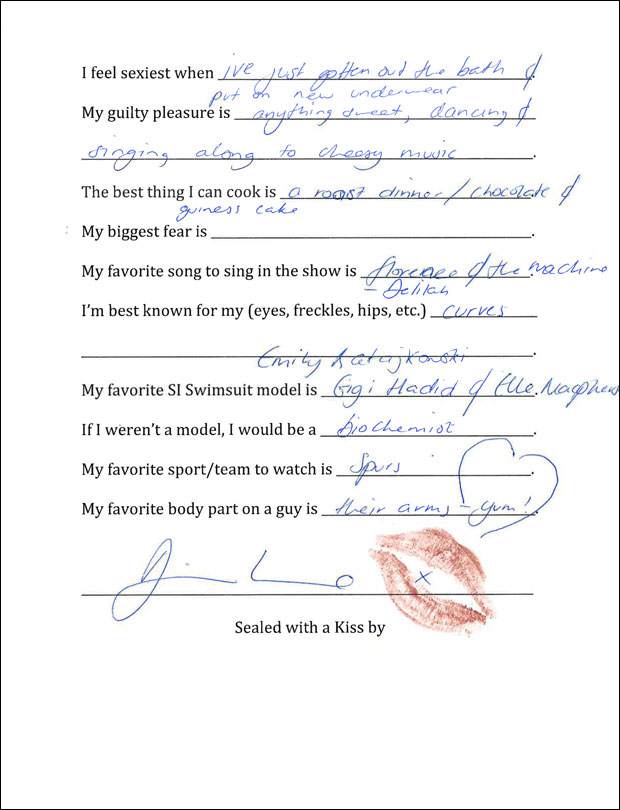 I feel sexiest when ive just gotten out the bath &
put on new underwear
My guilty pleasure is anything sweet, dancing &
singing along to cheesy music.
The best thing I can cook is a roast dinner / chocolate &
guiness cake
My biggest fear is ______.
My favorite song to sing in the show is florence & the machine
- Delilah
I'm best known for my (eyes, freckles, hips, etc.) curves
Emily Ratajkowski
My favorite SI Swimsuit model is Gigi Hadid & Elle Macpherson
If I weren't a model, I would be a biochemist.
My favorite sport/team to watch is Spurs.
My favorite body part on a guy is their arms - yum!
x
Sealed with a Kiss by